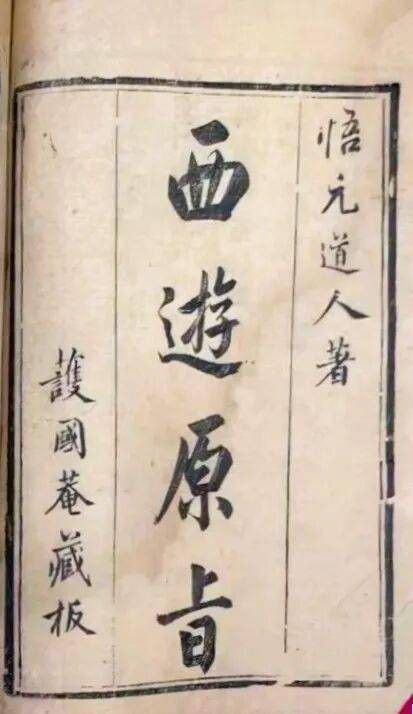 悟元道人著
西遊原旨
護國菴藏板